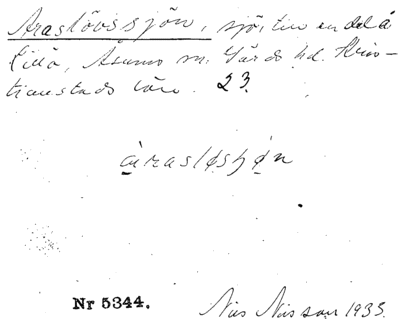 Araslövssjön, sjö, till en del å
Lillö, Åsums sn. Gärds hd. Kris-
tianstads län. 23.
àraslösjø̣n
Nr 5344.
Nils Nilsson 1935.